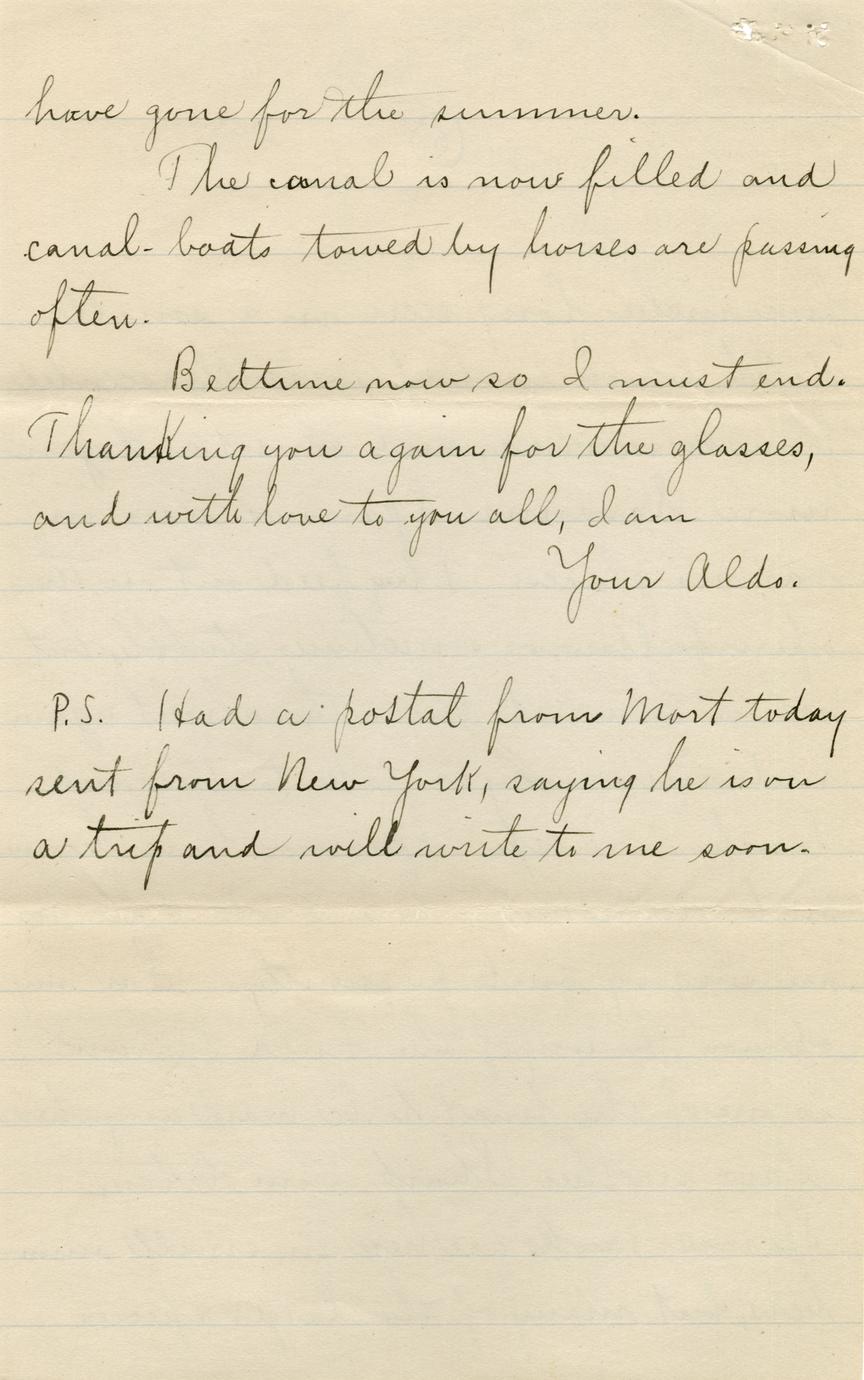 have gone for the summer.
The canal is now filled and
canal-boats towed by horses are passing
often.
Bedtime now so I must end.
Thanking you again for the glasses,
and with love to you all, I am
Your Aldo.
P.S. Had a postal from Mort today
sent from New York, saying he is on
a trip and will write to me soon.